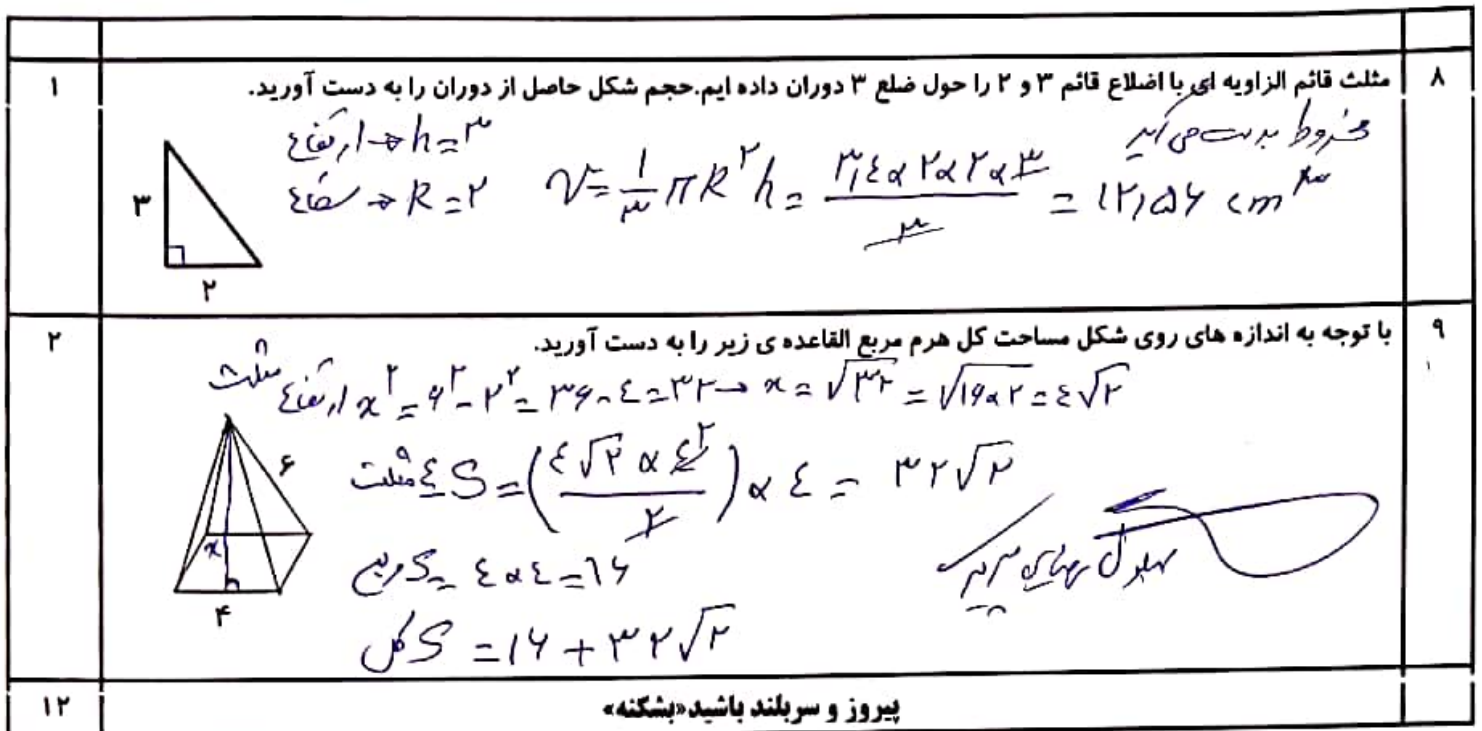 ۸ مثلث قائم الزاویه ای با اضلاع قائم ۳ و ۲ را حول ضلع ۳ دوران داده ایم.حجم شکل حاصل از دوران را به دست آورید. ۱
مخروط بدست می آید
ارتفاع → h = ۳
شعاع → R = ۲
V = \frac{۱}{۳} πR^۲ h = \frac{۳٫۱٤ × ۲ × ۲ × ۳}{۳} = ۱۲٫۵۶ cm^۳
۳
۲
۹ با توجه به اندازه های روی شکل مساحت کل هرم مربع القاعده ی زیر را به دست آورید. ۲
ارتفاع مثلث x^۲ = ۶^۲ - ۲^۲ = ۳۶ - ٤ = ۳۲ → x = √۳۲ = √۱۶×۲ = ٤√۲
۶
x
۴
٤ مثلث S = (\frac{٤√۲ × ٤}{۲}) × ٤ = ۳۲√۲
مربع S = ٤ × ٤ = ۱۶
کل S = ۱۶ + ۳۲√۲
پیروز و سربلند باشید«بشکنه» ۱۲